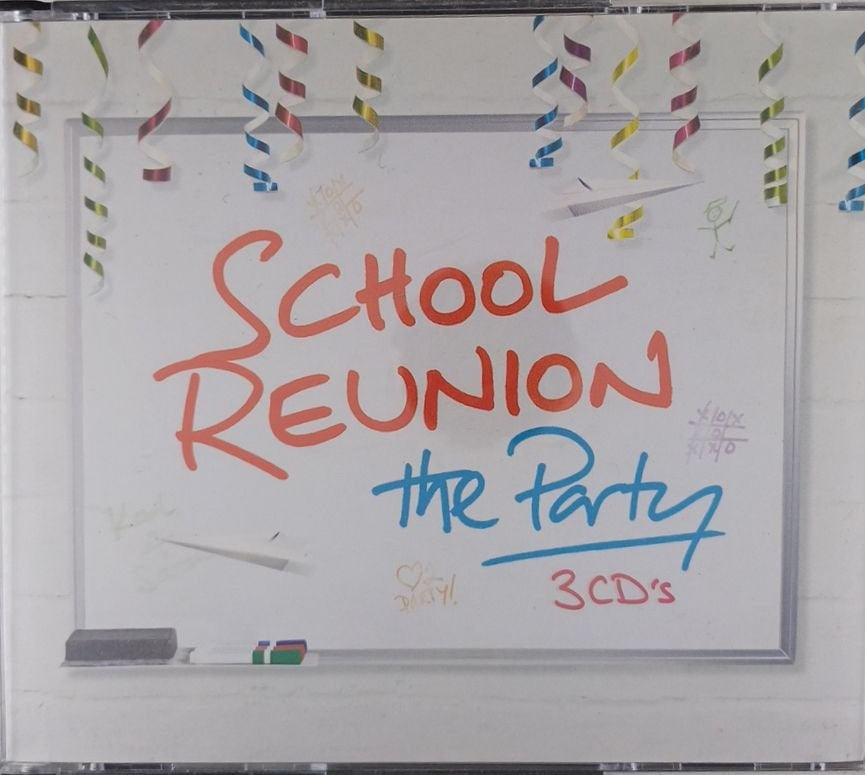 SCHOOL
REUNION
the Party
3 CD's
PARTY!